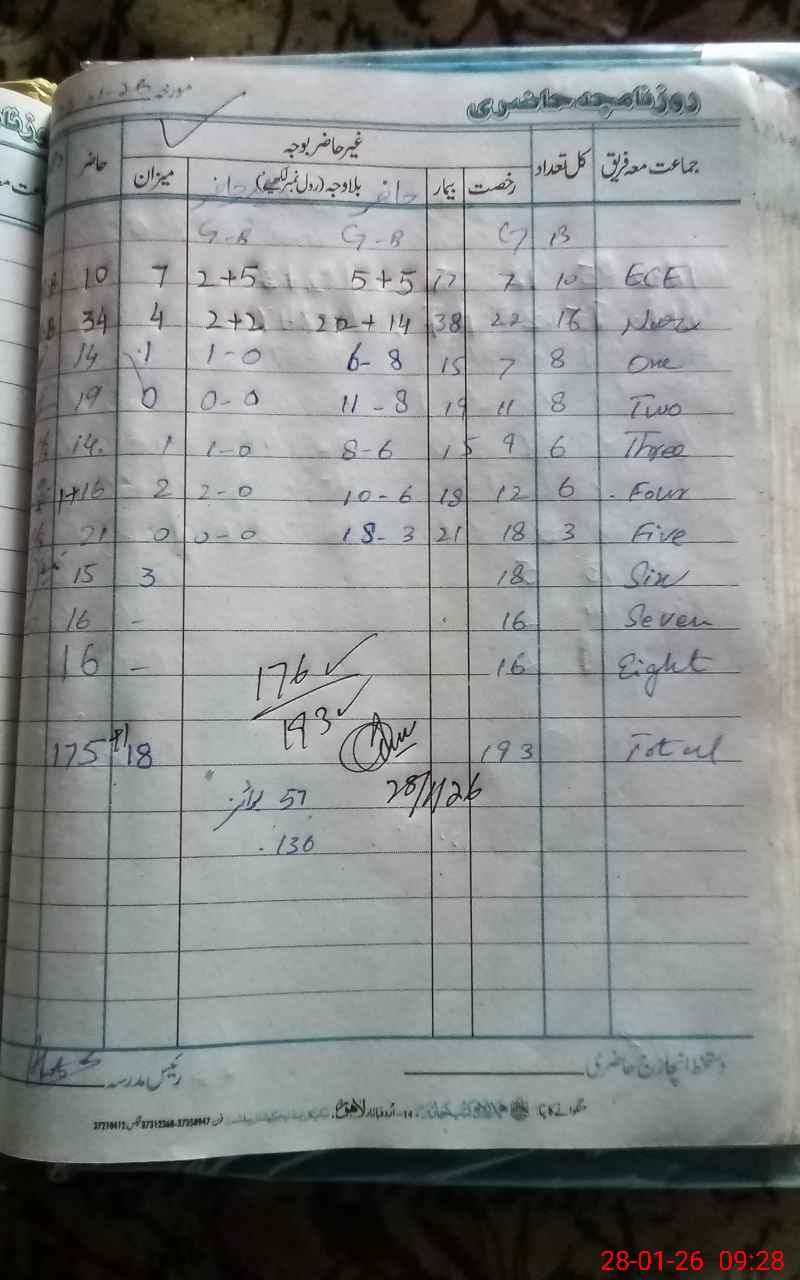 روزنامچہ حاضری
مورخہ
جماعت معہ فریق کل تعداد غیر حاضر بوجہ حاضر
رخصت بیمار بلاوجہ (رول نمبر لکھیے) میزان
حاضر
G-B G-B G B
10 7 2+5 5+5 17 7 10 ECE
34 4 2+2 20+14 38 22 16
14 1 1-0 6-8 15 7 8 One
19 0 0-0 11-8 19 11 8 Two
14 1 1-0 8-6 15 9 6 Three
1+16 2 2-0 10-6 18 12 6 Four
21 0 0-0 18-3 21 18 3 Five
15 3 18 Six
16 - 16 Seven
16 - 16 Eight
176
193
175 +1 18 193 Total
28/1/26
57
136
دستخط انچارج حاضری
رئیس مدرسہ
28-01-26 09:28